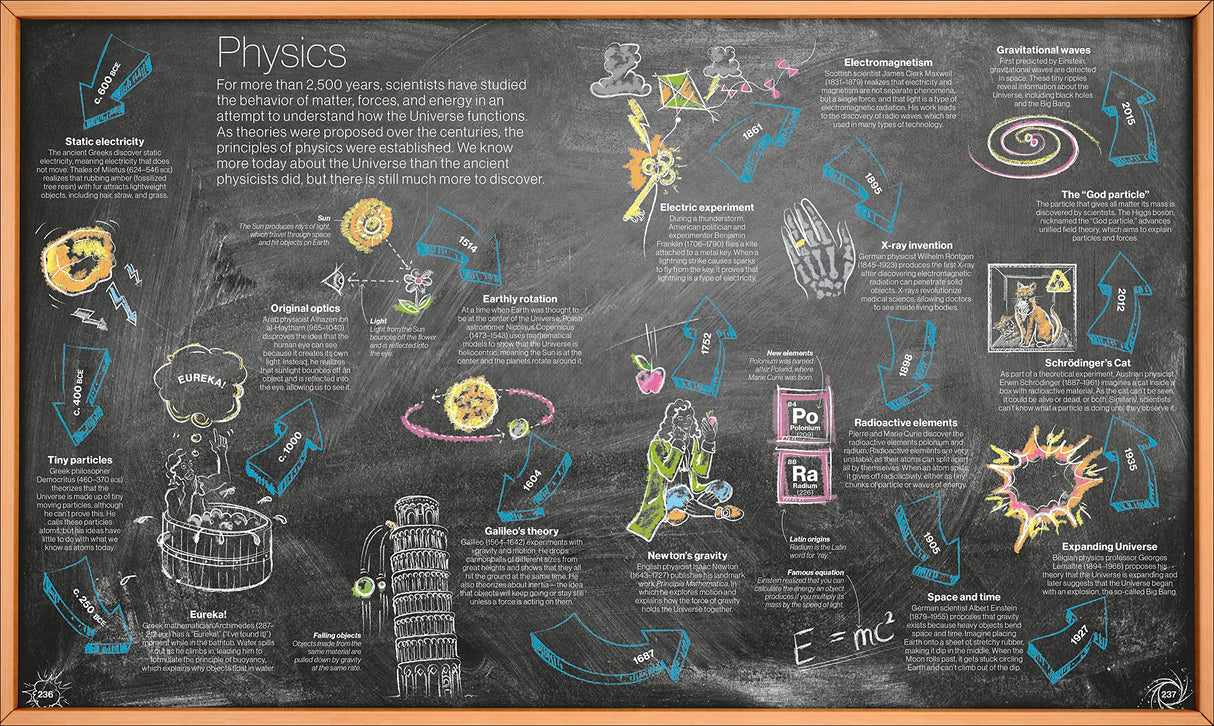 Physics
For more than 2,500 years, scientists have studied
the behavior of matter, forces, and energy in an
attempt to understand how the Universe functions.
As theories were proposed over the centuries, the
principles of physics were established. We know
more today about the Universe than the ancient
physicists did, but there is still much more to discover.
c. 600 BCE
Static electricity
The ancient Greeks discover static
electricity, meaning electricity that does
not move. Thales of Miletus (624–546 BCE)
realizes that rubbing amber (fossilized
tree resin) with fur attracts lightweight
objects, including hair, straw, and grass.
c. 400 BCE
Tiny particles
Greek philosopher
Democritus (460–370 BCE)
theorizes that the
Universe is made up of tiny
moving particles, although
he can't prove this. He
calls these particles
atoms, but his ideas have
little to do with what we
know as atoms today.
c. 250 BCE
EUREKA!
Eureka!
Greek mathematician Archimedes (287–
212 BCE) has a "Eureka!" ("I've found it!")
moment while in the bathtub. Water spills
out as he climbs in, leading him to
formulate the principle of buoyancy,
which explains why objects float in water.
c. 1000
Sun
The Sun produces rays of light,
which travel through space
and hit objects on Earth.
Original optics
Arab physicist Alhazen ibn
al-Haytham (965–1040)
disproves the idea that the
human eye can see
because it creates its own
light. Instead, he realizes
that sunlight bounces off an
object and is reflected into
the eye, allowing us to see it.
Light
Light from the Sun
bounces off the flower
and is reflected into
the eye
1514
Earthly rotation
At a time when Earth was thought to
be at the center of the Universe, Polish
astronomer Nicolaus Copernicus
(1473–1543) uses mathematical
models to show that the Universe is
heliocentric, meaning the Sun is at the
center and the planets rotate around it.
1604
Galileo's theory
Galileo (1564–1642) experiments with
gravity and motion. He drops
cannonballs of different sizes from
great heights and shows that they all
hit the ground at the same time. He
also theorizes about inertia—the idea
that objects will keep going or stay still
unless a force is acting on them.
Falling objects
Objects made from the
same material are
pulled down by gravity
at the same rate.
1687
Newton's gravity
English physicist Isaac Newton
(1643–1727) publishes his landmark
work Principia Mathematica, in
which he explores motion and
explains how the force of gravity
holds the Universe together.
1752
Electric experiment
During a thunderstorm,
American politician and
experimenter Benjamin
Franklin (1706–1790) flies a kite
attached to a metal key. When a
lightning strike causes sparks
to fly from the key, it proves that
lightning is a type of electricity.
1861
Electromagnetism
Scottish scientist James Clerk Maxwell
(1831–1879) realizes that electricity and
magnetism are not separate phenomena,
but a single force, and that light is a type of
electromagnetic radiation. His work leads
to the discovery of radio waves, which are
used in many types of technology.
1895
X-ray invention
German physicist Wilhelm Röntgen
(1845–1923) produces the first X-ray
after discovering electromagnetic
radiation can penetrate solid
objects. X-rays revolutionize
medical science, allowing doctors
to see inside living bodies.
1898
New elements
Polonium was named
after Poland, where
Marie Curie was born.
84
Po
Polonium
(209)
88
Ra
Radium
(226)
Latin origins
Radium is the Latin
word for "ray."
Radioactive elements
Pierre and Marie Curie discover the
radioactive elements polonium and
radium. Radioactive elements are very
unstable, as their atoms can split apart
all by themselves. When an atom splits,
it gives off radioactivity, either as tiny
chunks of particle or waves of energy.
1905
Famous equation
Einstein realized that you can
calculate the energy an object
produces if you multiply its
mass by the speed of light.
E = mc²
Space and time
German scientist Albert Einstein
(1879–1955) proposes that gravity
exists because heavy objects bend
space and time. Imagine placing
Earth onto a sheet of stretchy rubber,
making it dip in the middle. When the
Moon rolls past, it gets stuck circling
Earth and can't climb out of the dip.
1927
Expanding Universe
Belgian physics professor Georges
Lemaître (1894–1966) proposes his
theory that the Universe is expanding and
later suggests that the Universe began
with an explosion, the so-called Big Bang.
1935
Schrödinger's Cat
As part of a theoretical experiment, Austrian physicist
Erwin Schrödinger (1887–1961) imagines a cat inside a
box with radioactive material. As the cat can't be seen,
it could be alive or dead, or both. Similarly, scientists
can't know what a particle is doing until they observe it.
2012
The "God particle"
The particle that gives all matter its mass is
discovered by scientists. The Higgs boson,
nicknamed the "God particle," advances
unified field theory, which aims to explain
particles and forces.
2015
Gravitational waves
First predicted by Einstein,
gravitational waves are detected
in space. These tiny ripples
reveal information about the
Universe, including black holes
and the Big Bang.
236
237